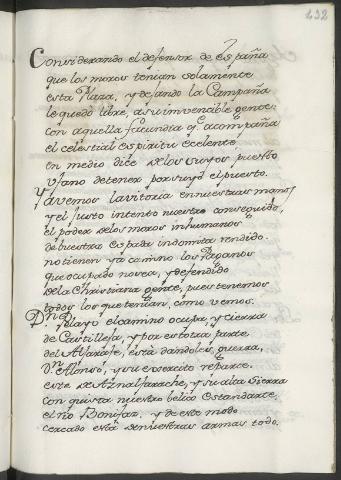 432
Considerando el defensor de españa
que los moros tenian solamente
esta Plaza, y dejando la Campaña
le quedó libre, a su invencible gente:
con aquella facundia q̃ acompaña
el celestial espiritu ecelente,
en medio dice de los suyos puesto
ufano de tener por suyo el puesto.
Ya vemos la vitoria en nuestras manos
y el justo intento nuestro conseguido,
el poder de los moros inhumanos
de vuestra espada indomita rendido.
no tienen ya camino los Paganos
que ocupado no sea, y defendido
de la Christiana gente, pues tenemos
todos los que tenian, como vemos.
Dn. Pelayo el camino ocupa, y cierra
de Castilleja, y por estotra parte
del Alfarafe, está dandoles guerra,
Dn. Alonso, y su exercito reparte.
este de Aznalfarache, y su alta Sierra
conquista nuestro belico estandarte,
el rio Bonifaz, y de este modo
cercado está de nuestras armas todo.